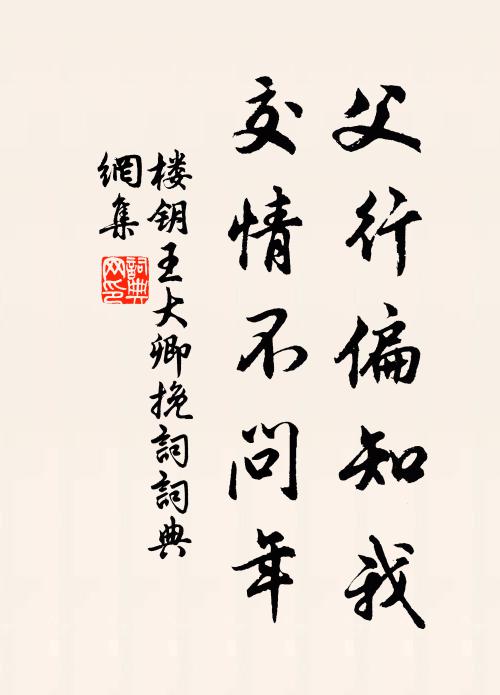 父行偏知我
交情不问年
楼钥王大卿挽詞詞典
網集
詞典网印